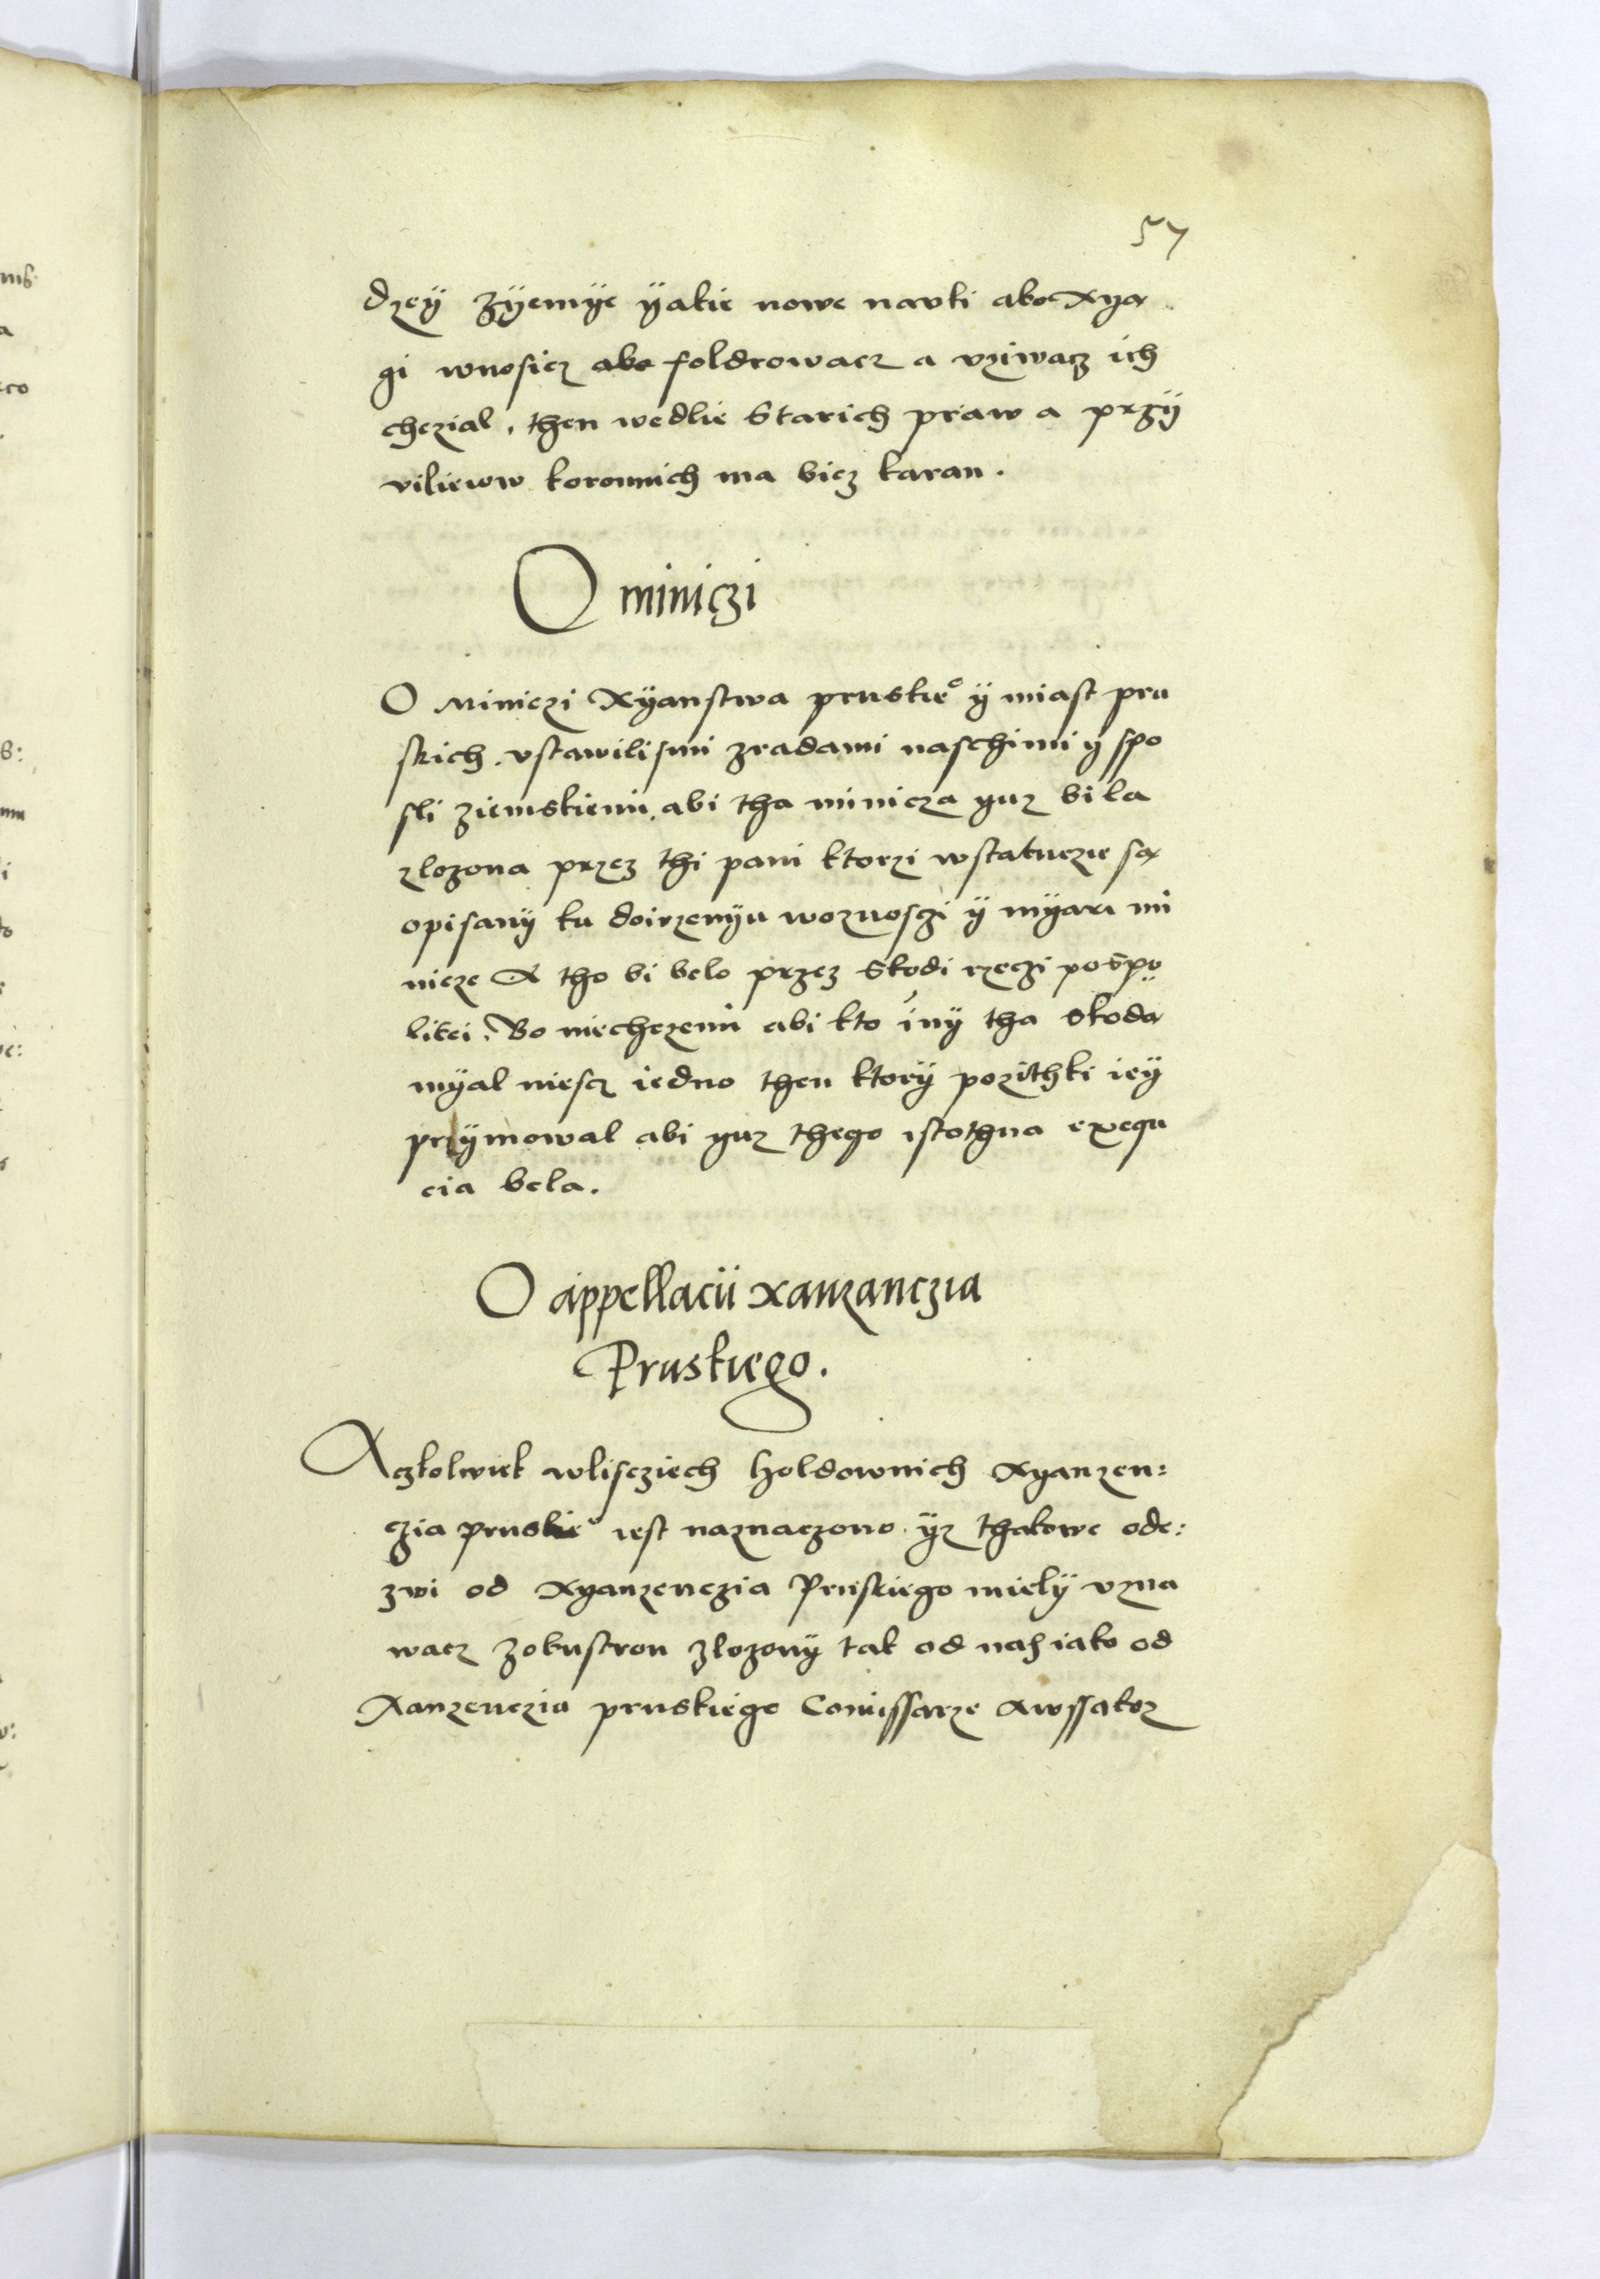 57
dzey zÿemÿe ÿakie nowe navki abo xya
gi wnosicz abo foldrowacz a vziwacz ich
chczial, then wedlie Starich praw a przÿ
vilieww koronnich ma bicz karan.
O miniczi
O Miniczi Xÿanstwa pruskie° ÿ miast pru
skich. vstawilismi zradami naschimi y spo
sli ziemskiemi, abi tha minicza yuz bila
zlozona przez thi pani ktorzi wstatuczie sa
opisanÿ ku doirzemyu woznosczi ÿ myari mi
nicze A tho bi belo przez Skodi rzeczi pospo
litei. Bo niechczemi abi kto inÿ tha Skoda
mÿal niescz iedno then ktorÿ pozithki iey
przÿmowal abi yuz thego istothna exequ
cia bela.
O appellacii xanzanczia
Pruskiego.
Aczkolwiek wlisciech holdownich Xyanzen:
czia pruskie° iest naznaczono ÿz thakowe ode:
zwi od Xyanzenczia Pruskiego mielÿ vzna
wacz zobustron zlozonÿ tak od nas iako od
Xanzenczia pruskiego Comissarze Awssakoz